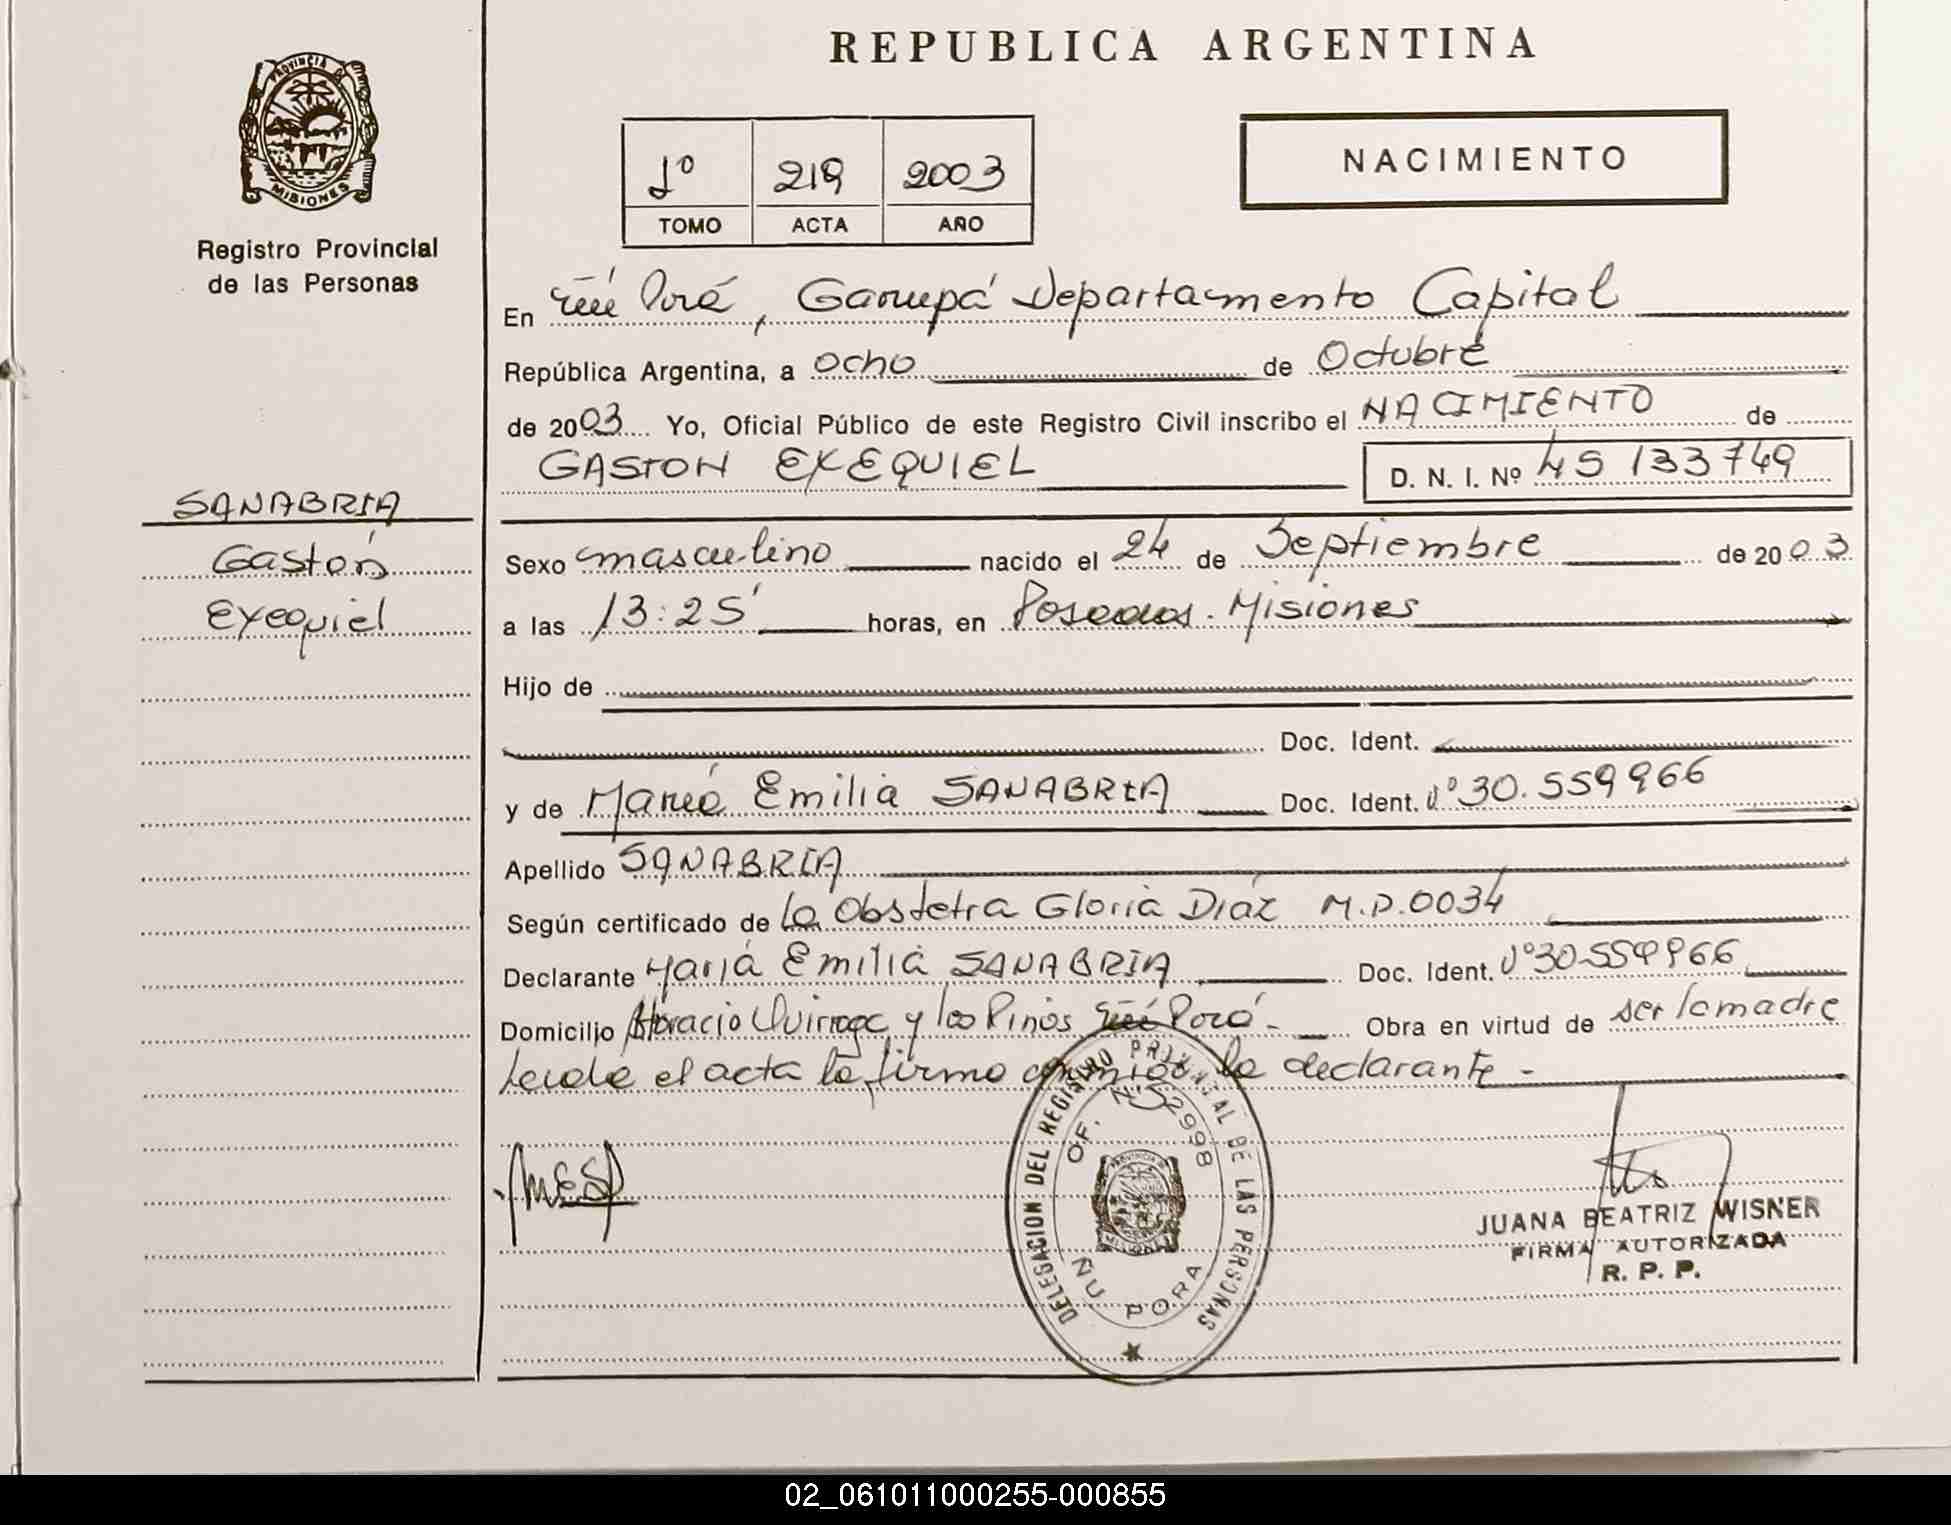 REPUBLICA ARGENTINA
PROVINCIA DE MISIONES
Registro Provincial
de las Personas
1º 219 2003
TOMO ACTA AÑO
NACIMIENTO
En Ñú Porá, Garupá Departamento Capital
República Argentina, a ocho de Octubre
de 2003 Yo, Oficial Público de este Registro Civil inscribo el NACIMIENTO de
GASTON EXEQUIEL D. N. I. Nº 45 133749
SANABRIA
Gastón
Exequiel
Sexo masculino nacido el 24 de Septiembre de 2003
a las 13:25' horas, en Posadas. Misiones
Hijo de
Doc. Ident.
y de María Emilia SANABRIA Doc. Ident. Nº 30.559966
Apellido SANABRIA
Según certificado de la Obstetra Gloria Diáz M.P.0034
Declarante María Emilia SANABRIA Doc. Ident. Nº 30.559966
Domicilio Horacio Quiroga y los Pinos Ñú Porá - Obra en virtud de ser la madre
Leida el acta la firma conmigo la declarante -
MES
DELEGACION DEL REGISTRO PROVINCIAL DE LAS PERSONAS
OF. Nº 52998
PROVINCIA DE MISIONES
ÑU PORA
JUANA BEATRIZ WISNER
FIRMA AUTORIZADA
R. P. P.
02_061011000255-000855